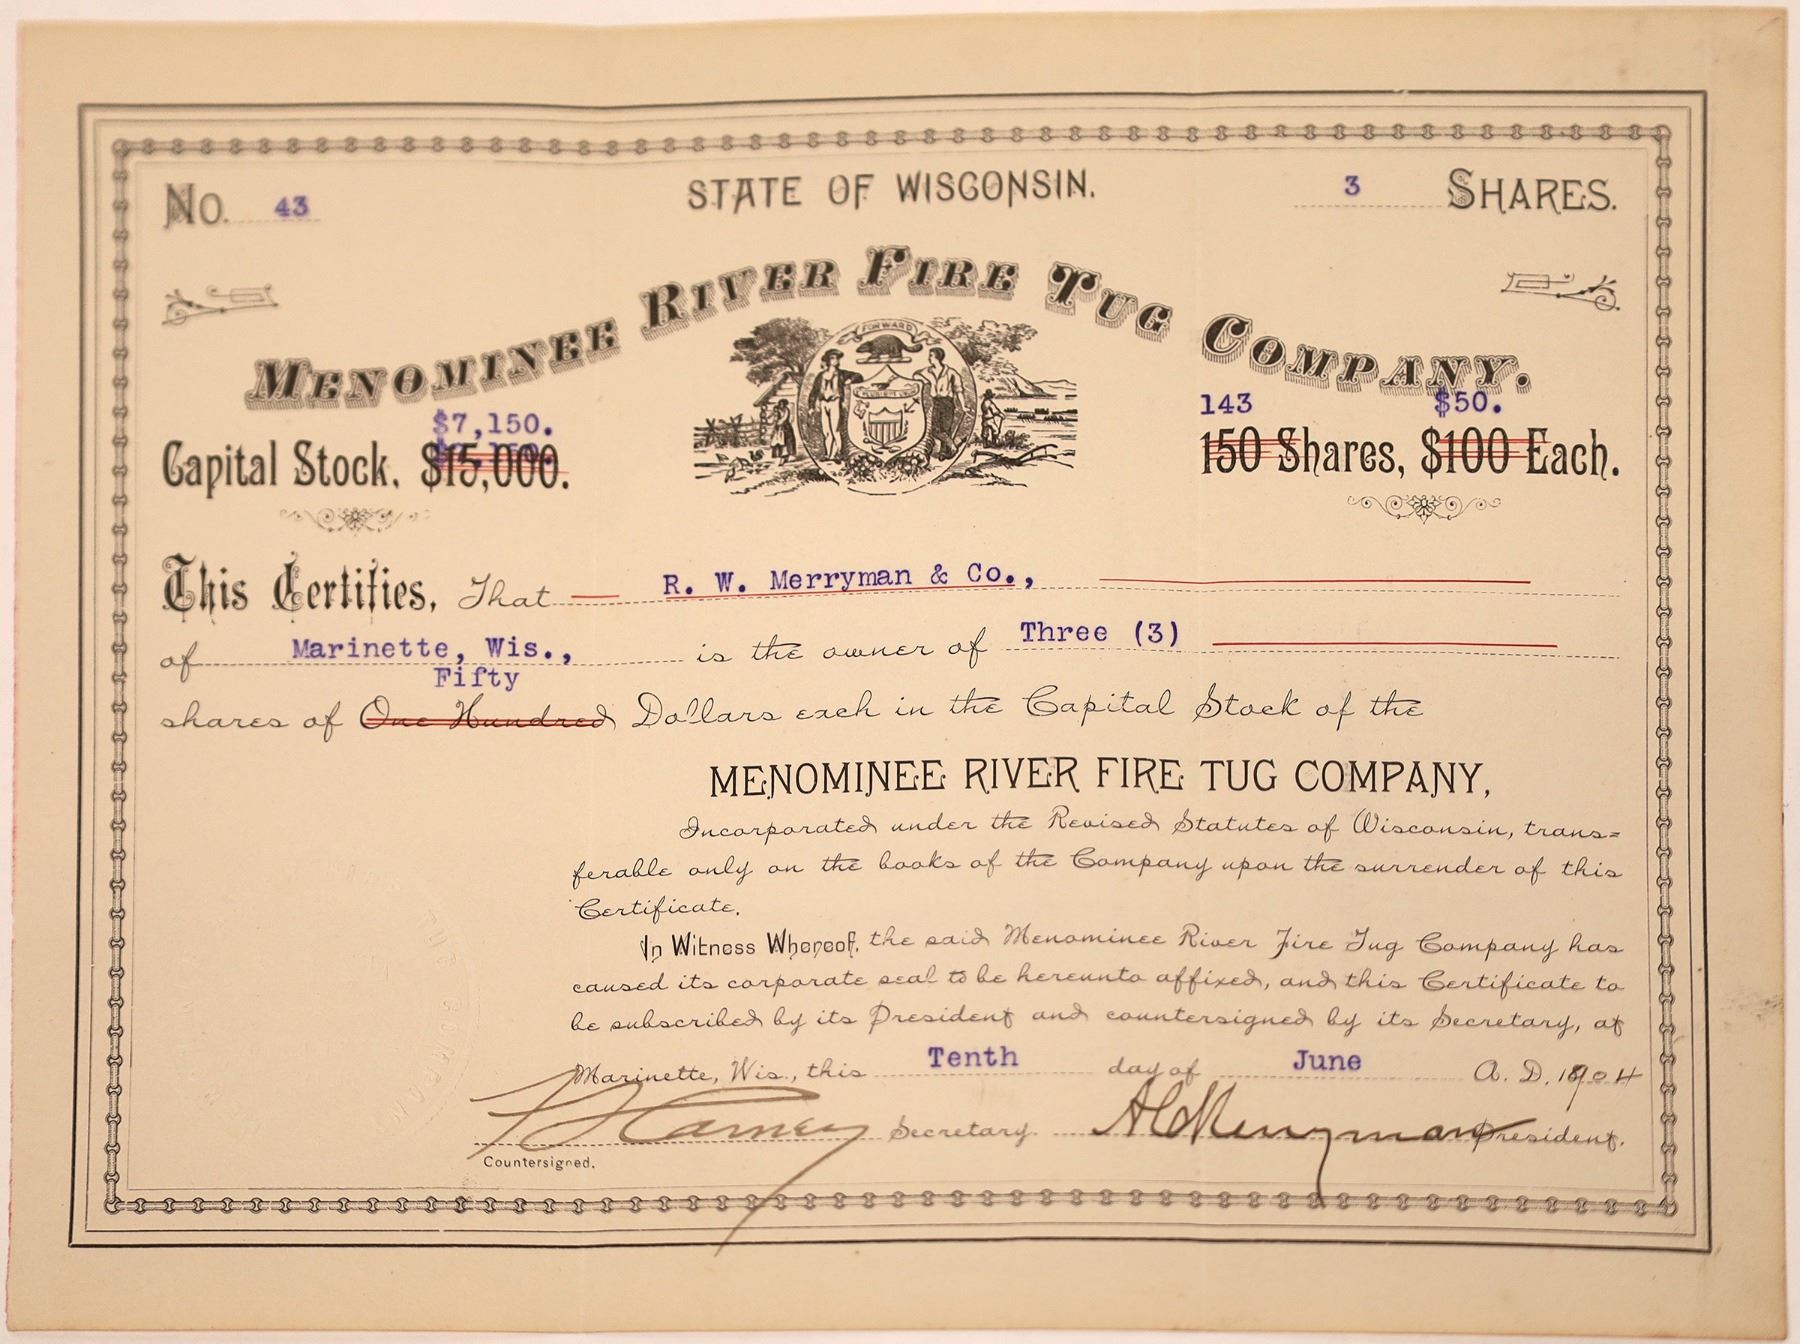 No. 43 STATE OF WISCONSIN. 3 SHARES.
MENOMINEE RIVER FIRE TUG COMPANY.
FORWARD
$7,150. 143 $50.
Capital Stock, $15,000. 150 Shares, $100 Each.
This Certifies, That R. W. Merryman & Co.,
of Marinette, Wis., is the owner of Three (3)
Fifty
shares of One Hundred Dollars each in the Capital Stock of the
MENOMINEE RIVER FIRE TUG COMPANY,
Incorporated under the Revised Statutes of Wisconsin, trans=
ferable only on the books of the Company upon the surrender of this
Certificate.
In Witness Whereof, the said Menominee River Fire Tug Company has
caused its corporate seal to be hereunto affixed, and this Certificate to
be subscribed by its President and countersigned by its Secretary, at
Marinette, Wis., this Tenth day of June A. D. 1904
Secretary. A C Merryman President.
Countersigned.